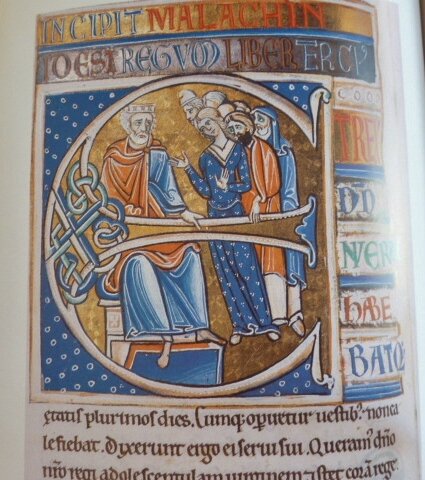 INCIPIT MALACHIN
IDEST REGVM LIBER TERCV
E
TRE
NVER
HABE
BATQ
etatis plurimos dies. Cumq; operiretur uestib; nonca
lefiebat. Dixerunt ergo ei serui sui. Queram dño
nrō regi adolescentulam uirginem & stet corā rege